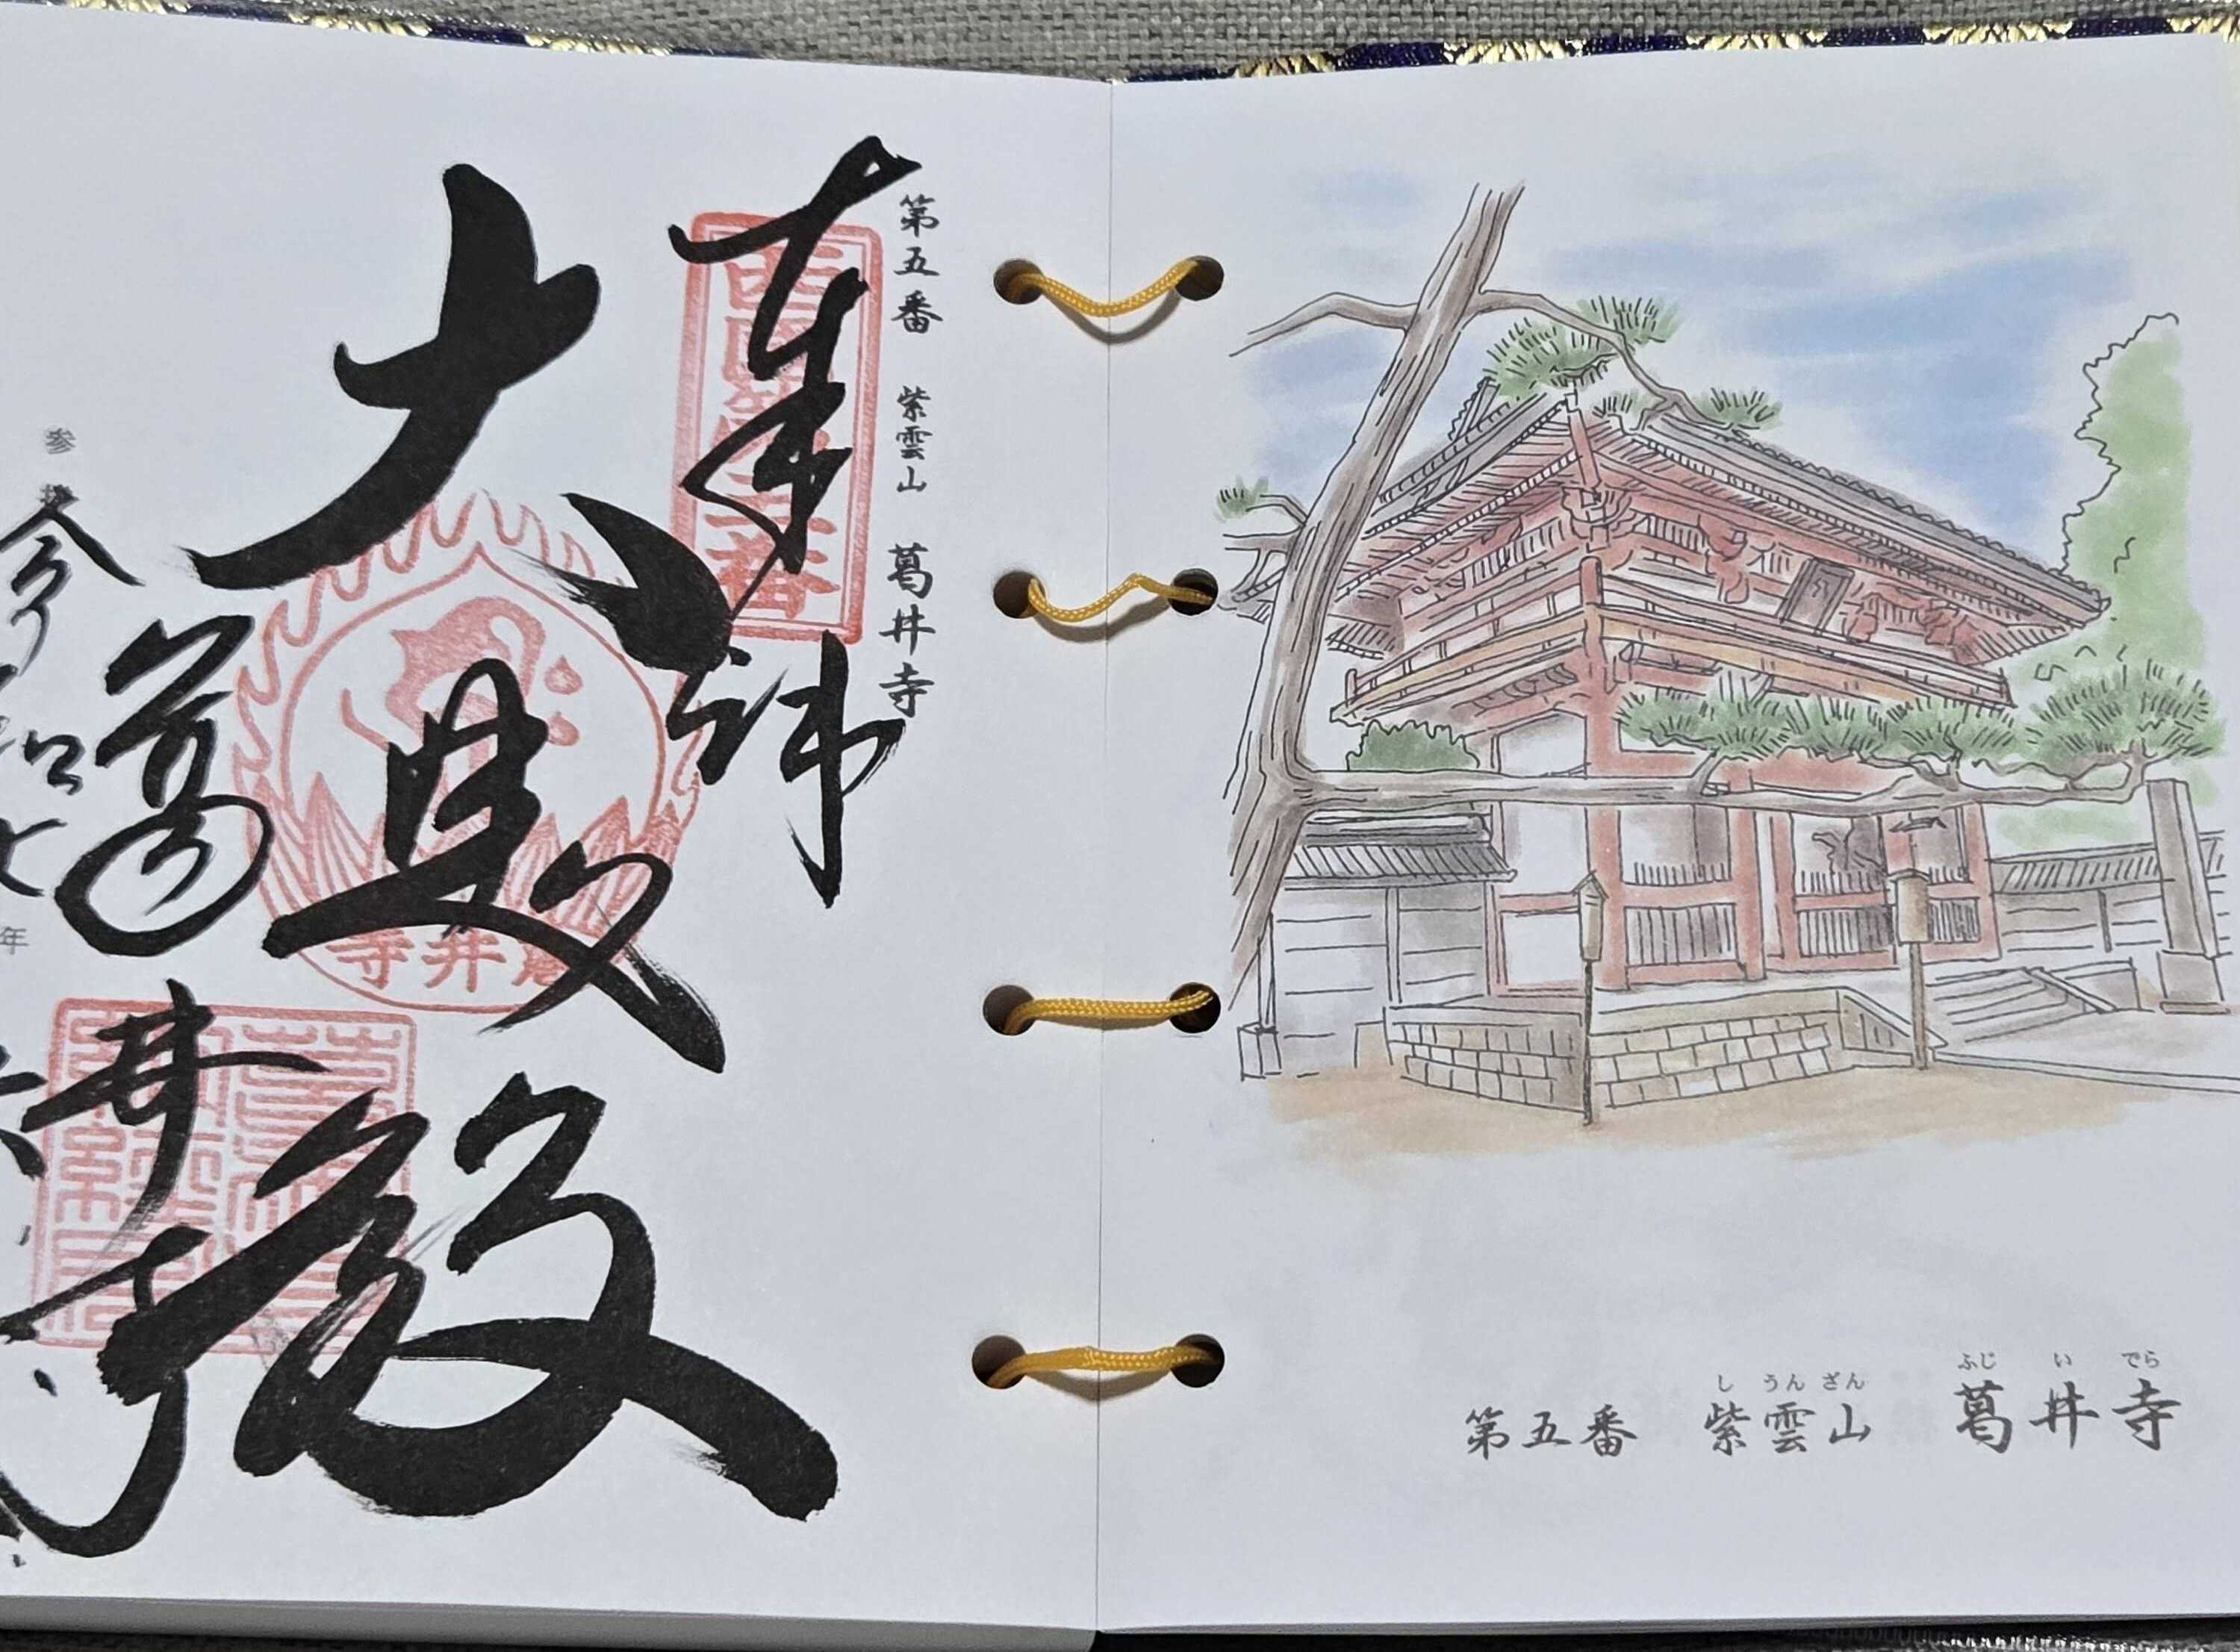 第五番　紫雲山　葛井寺
奉拝
西国第五番
大悲殿
葛井寺
葛井寺
参
令和七年
ふじ い でら
し うん ざん
第五番　紫雲山　葛井寺